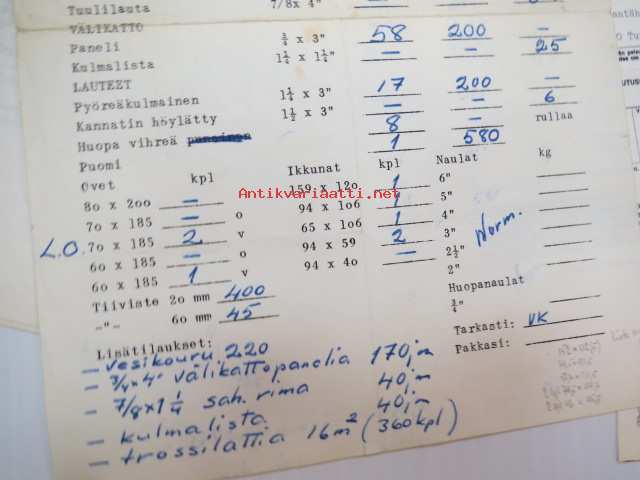 Tuulilauta 7/8x 4"
VÄLIKATTO
Paneli 3/4 x 3" 58 200 —
Kulmalista 1 1/4 x 1 1/4" — — 25
LAUTEET
Pyöreäkulmainen 1 1/4 x 3" 17 200 —
Kannatin höylätty 1 1/2 x 3" — — 6
Huopa vihreä 8 — rullaa
Puomi 1 580
Ovet kpl Ikkunat kpl Naulat kg
80 x 200 — 159 x 120 1 6"
70 x 185 — o 94 x 106 1 5"
L.O. 70 x 185 2 v 65 x 106 1 4"
60 x 185 — o 94 x 59 2 3" Norm.
60 x 185 1 v 94 x 40 — 2 1/2"
Tiiviste 20 mm 400 2"
-"- 60 mm 45 Huopanaulat
3/4"
Tarkasti: VK
Pakkasi:
Lisätilaukset:
— vesikouru 220
— 3/4x4" välikattopanelia 170jm
— 7/8x1 1/4 sah. rima 40jm
— kulmalista 40jm
— trossilattia 16m² (360kpl)
Antikvariaatti.net